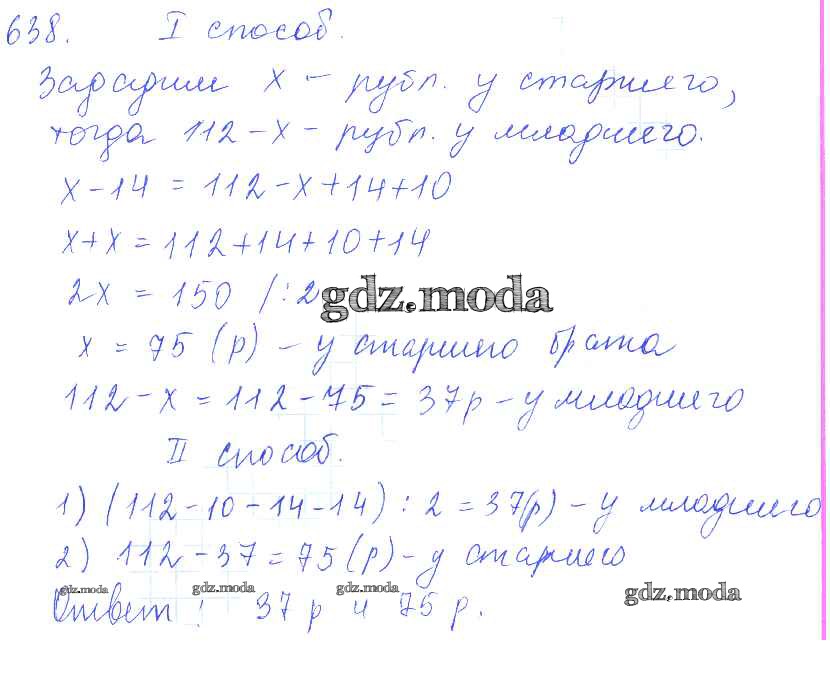 638. I способ.
Зададим x - рубл. у старшего,
тогда 112-x - рубл. у младшего.
x-14 = 112-x+14+10
x+x = 112+14+10+14
2x = 150 /:2
gdz.moda
x = 75 (р) - у старшего брата
112-x = 112-75 = 37р - у младшего
II способ.
1) (112-10-14-14) : 2 = 37(р) - у младшего
2) 112-37 = 75 (р) - у старшего
gdz.moda gdz.moda gdz.moda gdz.moda
Ответ: 37 р и 75 р.